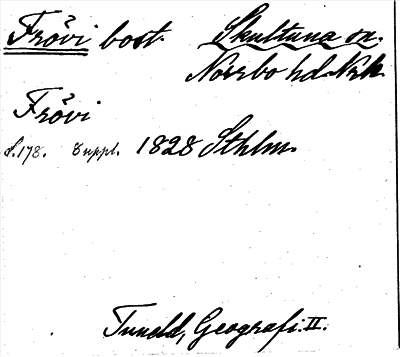 Frövi bost. Skultuna sn.
Norrbo hd. Nrk.
Frövi
S. 178. Suppl. 1828 Sthlm.
Tuneld, Geografi. II.